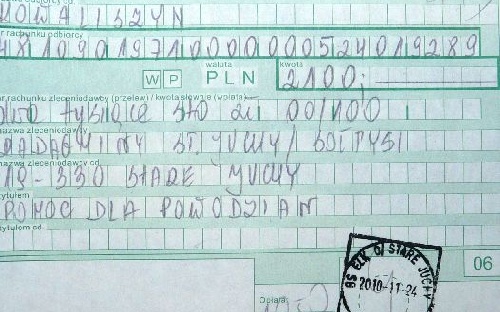 KOWALISZYN
nr rachunku odbiorcy
48 1090 1971 0000 0005 2401 9289
waluta kwota
W P PLN 2100,-
nr rachunku zleceniodawcy (przelew) / kwota słownie (wpłata)
tysiące sto zł 00/100
nazwa zleceniodawcy
RADA GMINY ST. JUCHY / SOŁTYSI
nazwa zleceniodawcy cd.
19-330 STARE JUCHY
tytułem
POMOC DLA POWODZIAN
tytułem cd.
06
BS EŁK O/ STARE JUCHY
2010-11-24
Opłata: